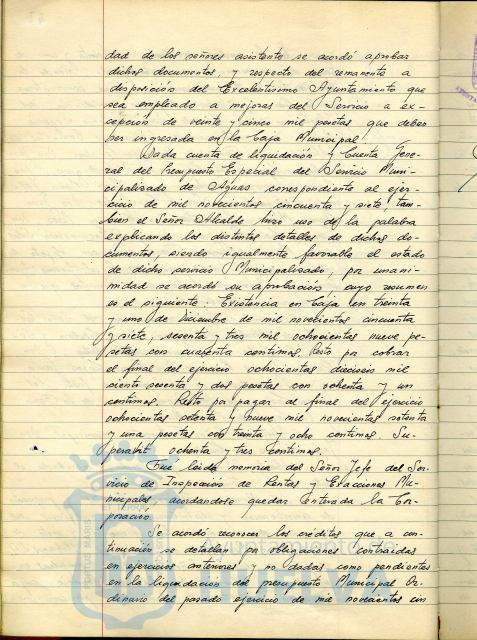 dad de los señores asistente se acordó aprobar
dichos documentos, y respecto del remanente a
disposición del Excelentísimo Ayuntamiento que
sea empleado a mejoras del Servicio a ex-
cepción de veinte y cinco mil pesetas que deben
ser ingresada en la Caja Municipal.
Dada cuenta de liquidación y Cuenta Gene-
ral del Presupuesto Especial del Servicio Muni-
cipalizado de Aguas correspondiente al ejer-
cicio de mil novecientos cincuenta y siete, tam-
bien el Señor Alcalde hizo uso de la palabra
explicando los distintos detalles de dichos do-
cumentos, siendo igualmente favorable el estado
de dicho servicio Municipalizado, por unani-
midad se acordó su aprobación, cuyo resumen
es el siguiente: Existencia en Caja en treinta
y uno de Diciembre de mil novecientos cincuenta
y siete, sesenta y tres mil ochocientos nueve pe-
setas con cuarenta centimos. Resto por cobrar
el final del ejercicio ochocientos dieciseis mil
ciento sesenta y dos pesetas con ochenta y un
centimos. Resto por pagar al final del ejercicio
ochocientas setenta y nueve mil novecientos setenta
y una pesetas con treinta y ocho centimos. Su-
perabit ochenta y tres centimos.
Fué leida memoria del Señor Jefe del Ser-
vicio de Inspección de Rentas y Exacciones Mu-
nicipales acordandose quedar enterada la Cor-
poración.
Se acordó reconocer los créditos que a con-
tinuación se detallan por obligaciones contraidas
en ejercicios anteriores y no dadas como pendientes
en la liquidación del presupuesto Municipal Or-
dinario del pasado ejercicio de mil novecientos cin